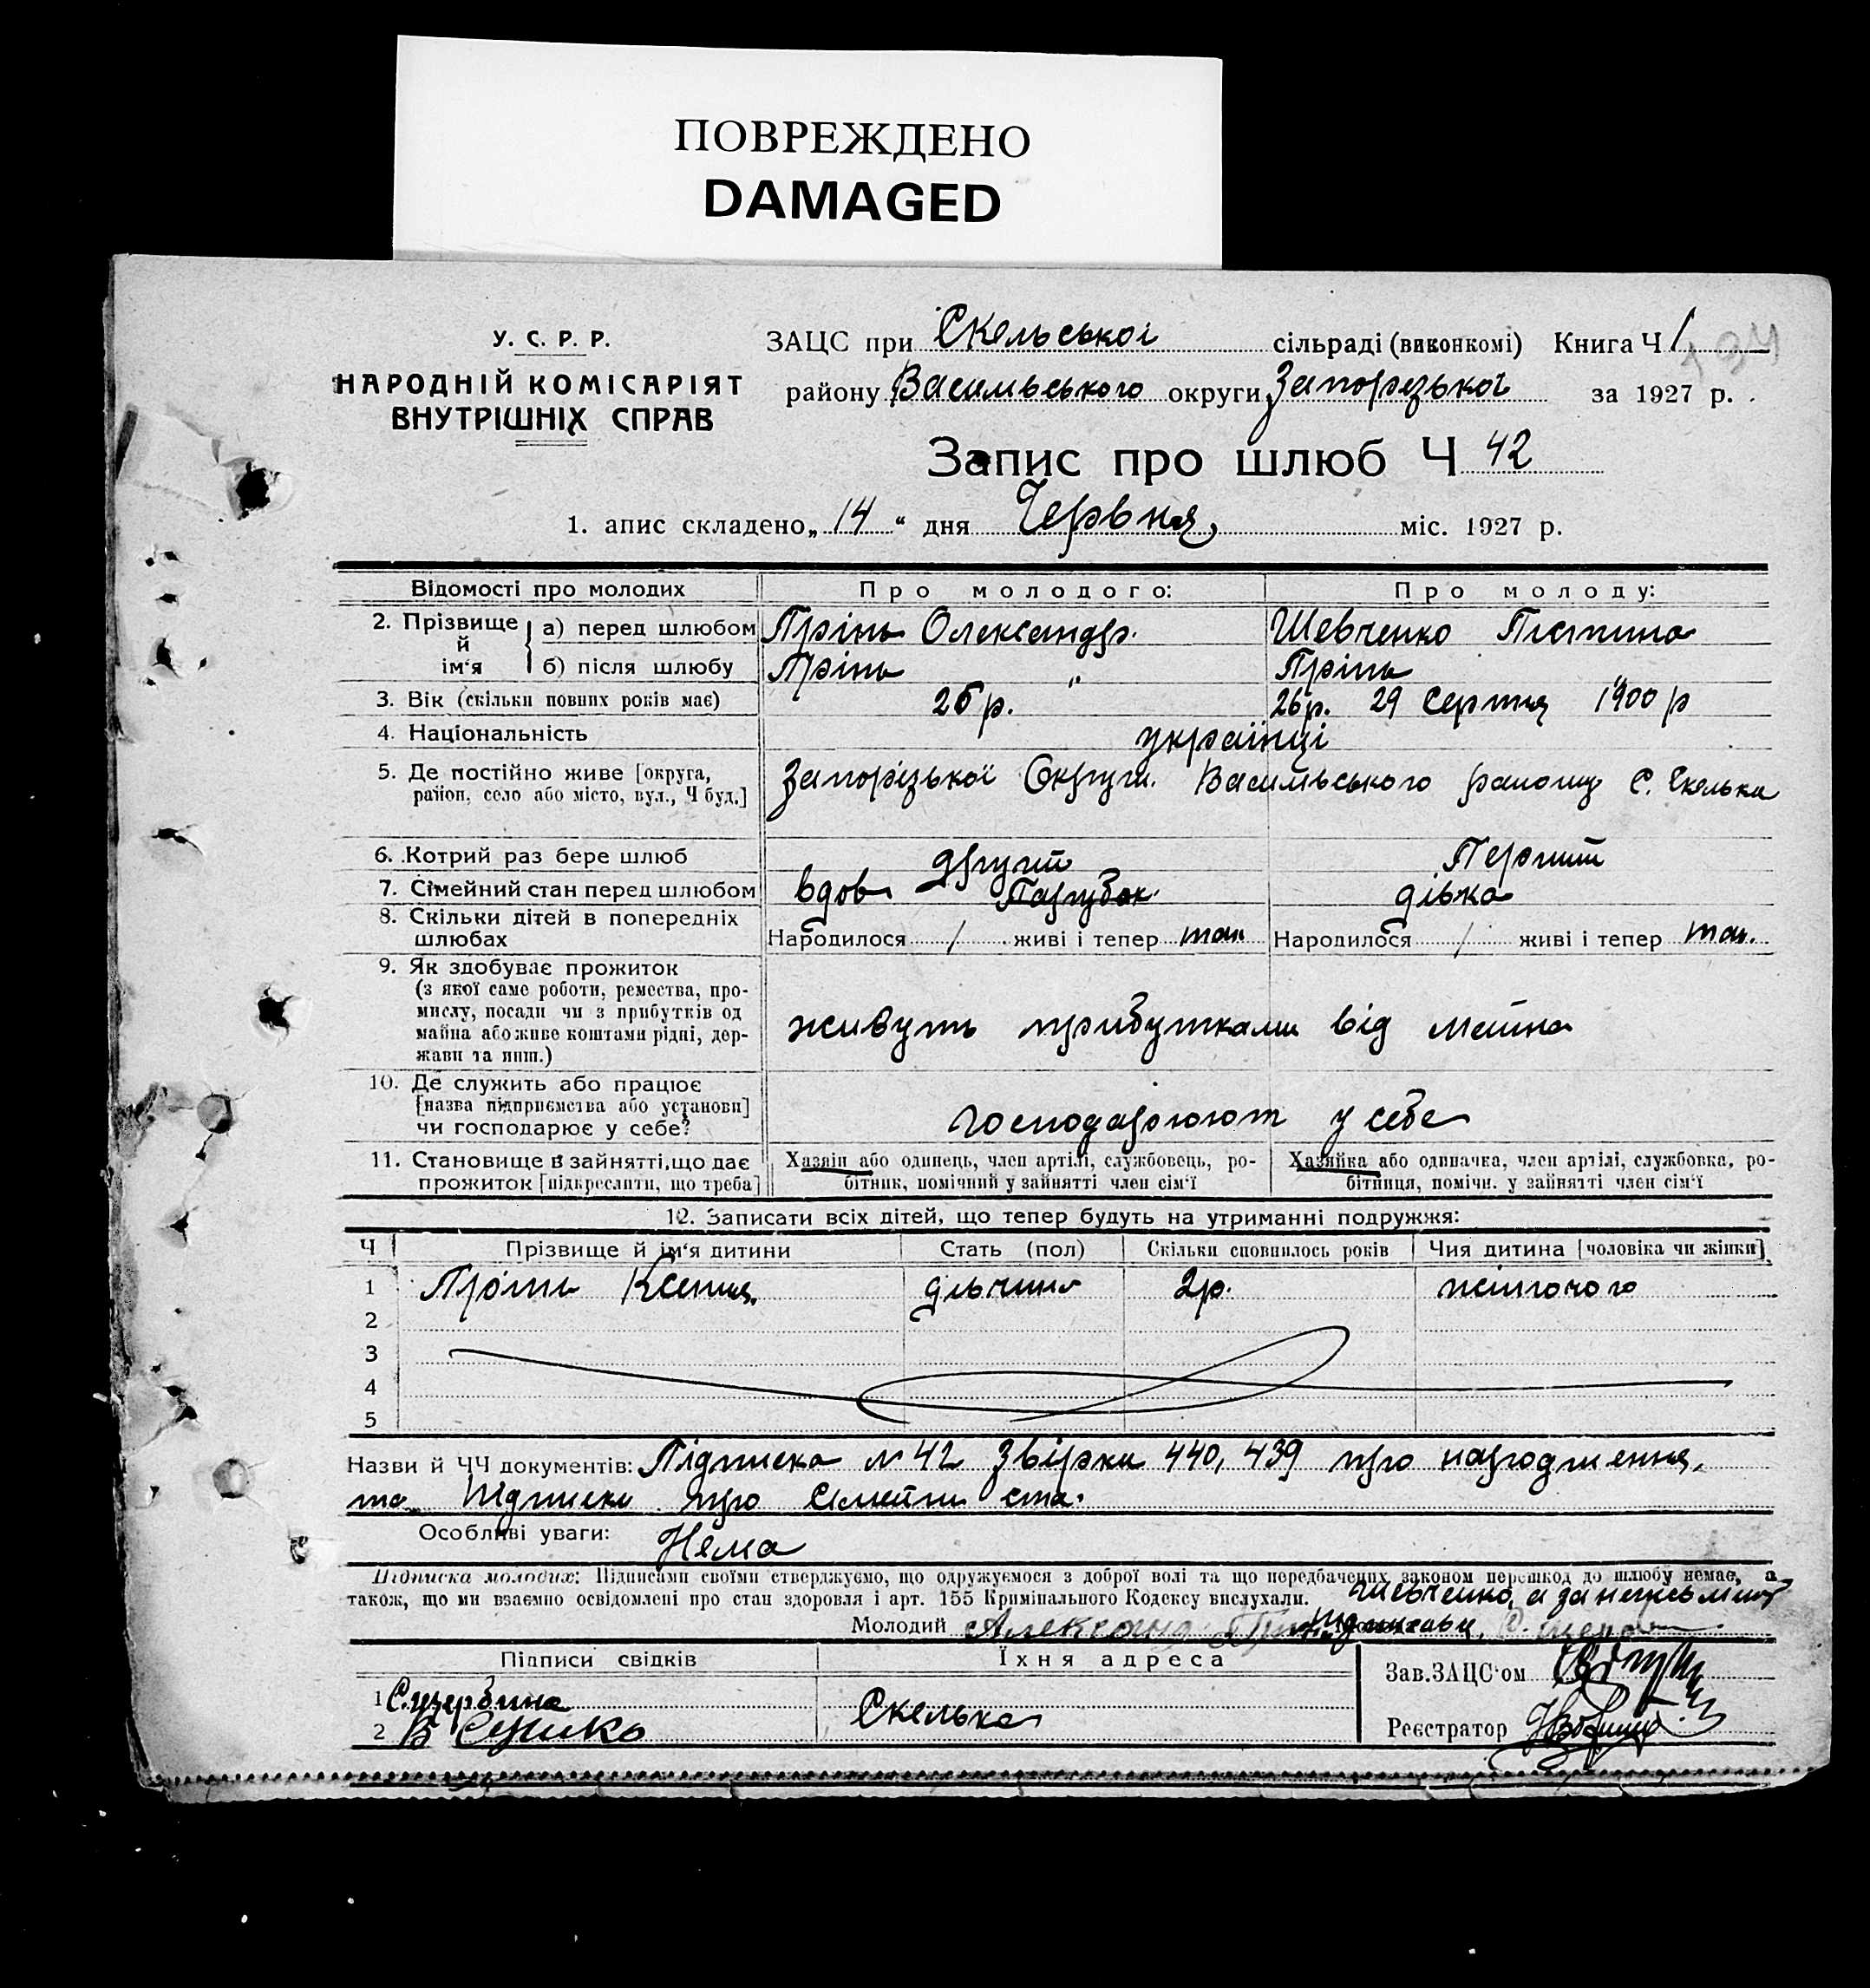 ПОВРЕЖДЕНО
DAMAGED
У. С. Р. Р.
НАРОДНІЙ КОМІСАРІЯТ
ВНУТРІШНІХ СПРАВ
ЗАЦС при Скельської сільраді (виконкомі) Книга Ч 1
району Васильвського округи Запорізької за 1927 р.
Запис про шлюб Ч 42
1. апис складено „ 14 “ дня Червня міс. 1927 р.
Відомості про молодих Про молодого: Про молоду:
2. Прізвище й ім‘я а) перед шлюбом Прінь Олександр Шевченко
б) після шлюбу Прінь " Прінь "
3. Вік (скільки повних років має) 26 р. 26 р. 29 Серпня 1900 р
4. Національність українці
5. Де постійно живе [округа, район, село або місто, вул., Ч буд.] Запорізької Округи Васильвського району С. Скелька
6. Котрий раз бере шлюб другий Перший
7. Сімейний стан перед шлюбом вдов Парубок дівка
8. Скільки дітей в попередніх шлюбах Народилося / живі і тепер Народилося / живі і тепер
9. Як здобуває прожиток
(з якої саме роботи, ремества, про-
мислу, посади чи з прибутків од
майна або живе коштами рідні, дер-
жави та инш.)
живуть прибутками від майна
10. Де служить або працює
[назва підприємства або установи]
чи господарює у себе?
господарюют у себе
11. Становище в зайнятті, що дає
прожиток [підкреслити, що треба]
Хазяін або одинець, член артілі, службовець, ро-
бітник, помічний у зайнятті член сім‘ї
Хазяйка або одиначка, член артілі, службовка, ро-
бітниця, помічн. у зайнятті член сім‘ї
12. Записати всіх дітей, що тепер будуть на утриманні подружжя:
Ч Прізвище й ім‘я дитини Стать (пол) Скільки сповнилось років Чия дитина [чоловіка чи жінки]
1 Ксенія 2 р.
2
3
4
5
Назви й ЧЧ документів: Підписка № 42 Звірки 440, 439 про народження,
та Підписки про Сімейни ста.
Особливі уваги: Нема
Підписка молодих: Підписами своїми стверджуємо, що одружуємося з доброї волі та що передбачених законом перешкод до шлюбу немає, а
також, що ми взаємно освідомлені про стан здоровля і арт. 155 Кримінального Кодексу вислухали. Шевченко, а за
Молодий Александ
Підписи свідків Їхня адреса Зав. ЗАЦС‘ом
1 С. Щербина
2 Скелька Реєстратор